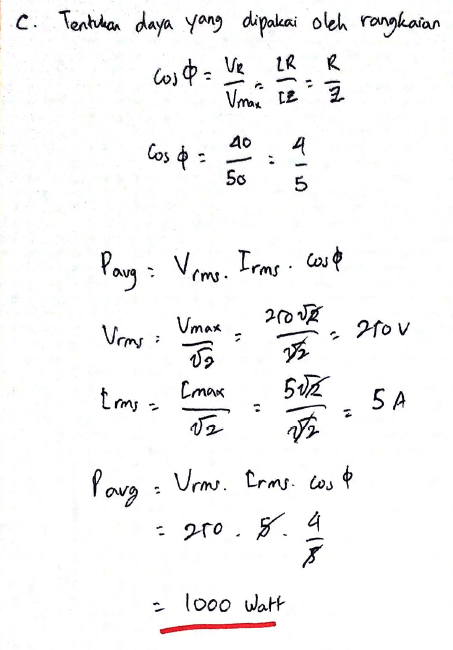 C. Tentukan daya yang dipakai oleh rangkaian
Cos ϕ = VR/Vmax = IR/IZ = R/Z
Cos ϕ = 40/50 = 4/5
Pavg = Vrms . Irms . cos ϕ
Vrms = Vmax/√2 = 250√2/√2 = 250 V
Irms = Imax/√2 = 5√2/√2 = 5 A
Pavg = Vrms . Irms . cos ϕ
= 250 . 5 . 4/5
= 1000 Watt